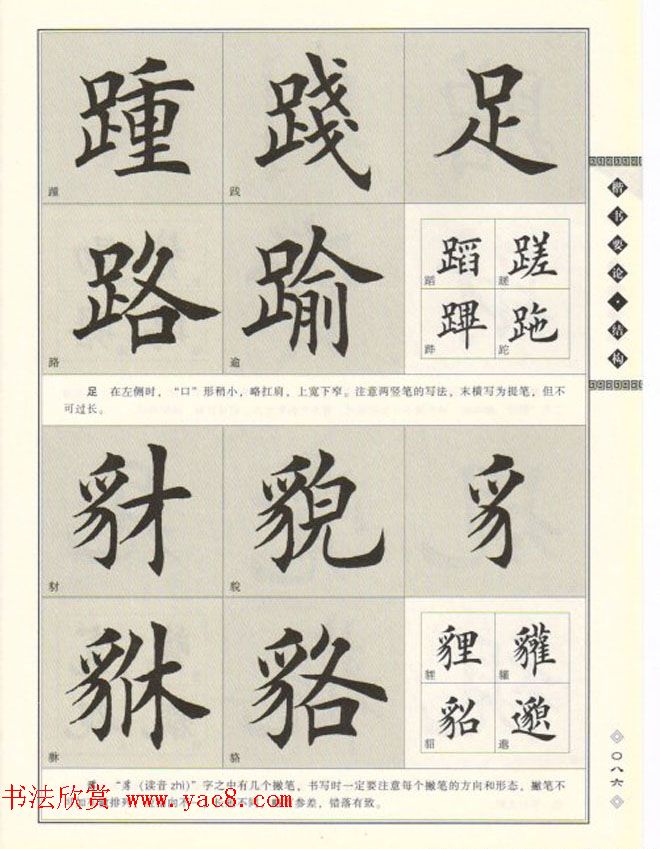 踵 踐 足
踵 践
路 踰
蹈 蹉
蹈 蹉
蹕 跎
跸 跎
路 逾
足 在左侧时，“口”形稍小，略扛肩，上宽下窄。注意两竖笔的写法，末横写为提笔，但不
可过长。
豺 貌 豸
豺 貌
貅 貉
貍 貛
貍 貛
貂 邈
貂 邈
貅 貉
豸 “豸（读音 zhì）”字之中有几个撇笔，书写时一定要注意每个撇笔的方向和形态，撇笔不
参差，错落有致。
书法欣赏 www.yac8.com
楷书要论·结构
〇八六